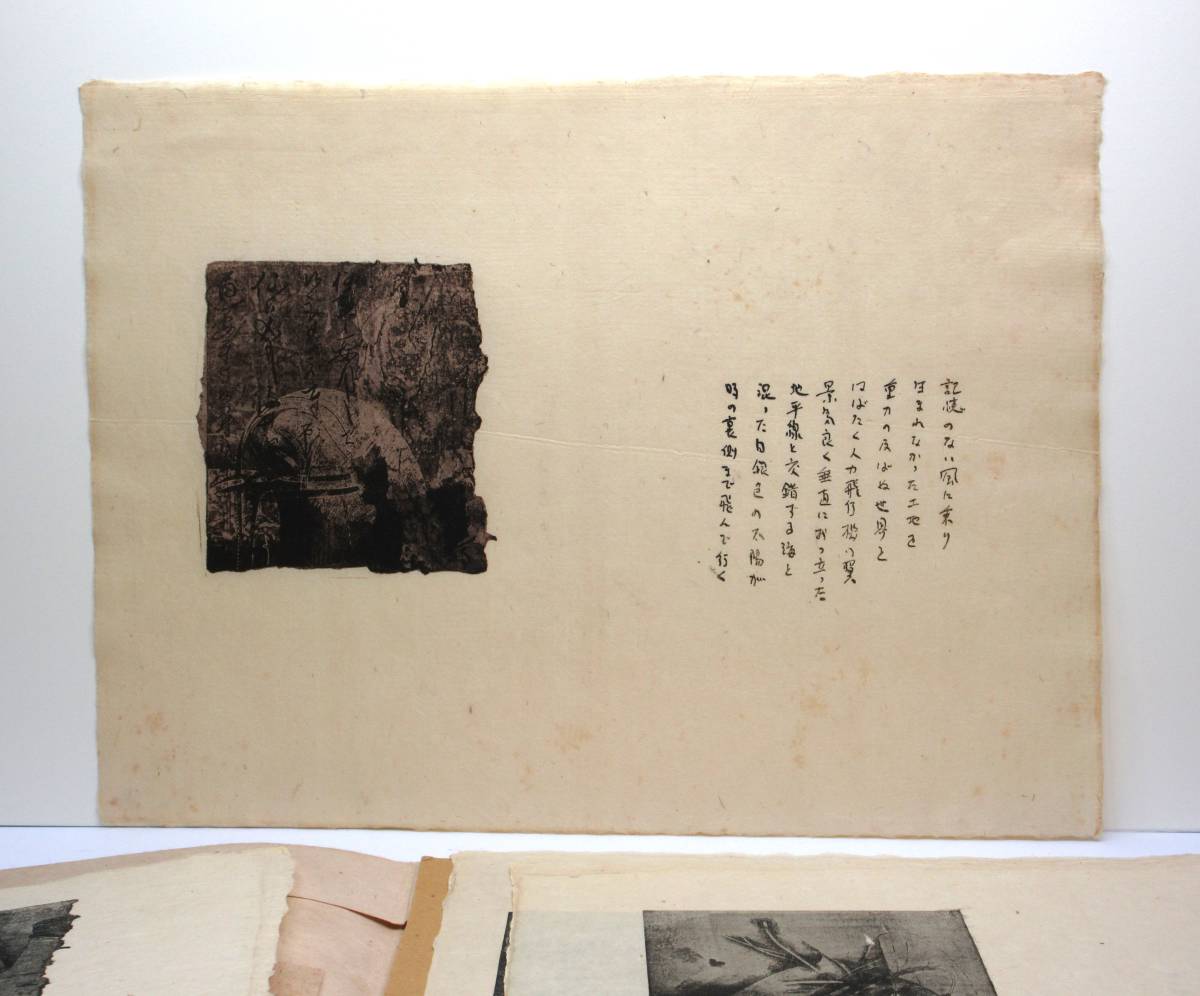 記憶のない風に乗り
生まれなかった土地を
重力の及ばぬ世界を
はばたく人力飛行機の翼
景気良く垂直におっ立った
地平線と交錯する海と
混った白銀色の太陽が
時の裏側まで飛んで行く